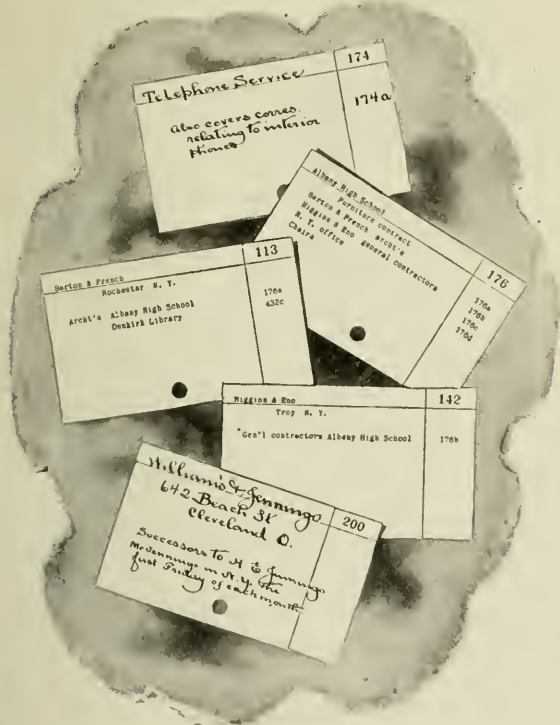 174
Telephone Service
174a
Also covers corres.
relating to interior
phones
Albany High School
176
Furniture contract
Barton & French archt's
176a
Higgins & Eno general contractors
176b
N. Y. office
176c
Chairs
176d
113
Barton & French
Rochester N. Y.
176a
Archt's Albany High School
432c
Dunkirk Library
Higgins & Eno
142
Troy N. Y.
Gen'l contractors Albany High School
176b
Williams & Jennings
642 Beach St
Cleveland O.
200
Successors to A E Jennings
Mr Jennings in N.Y. the
first Friday of each month